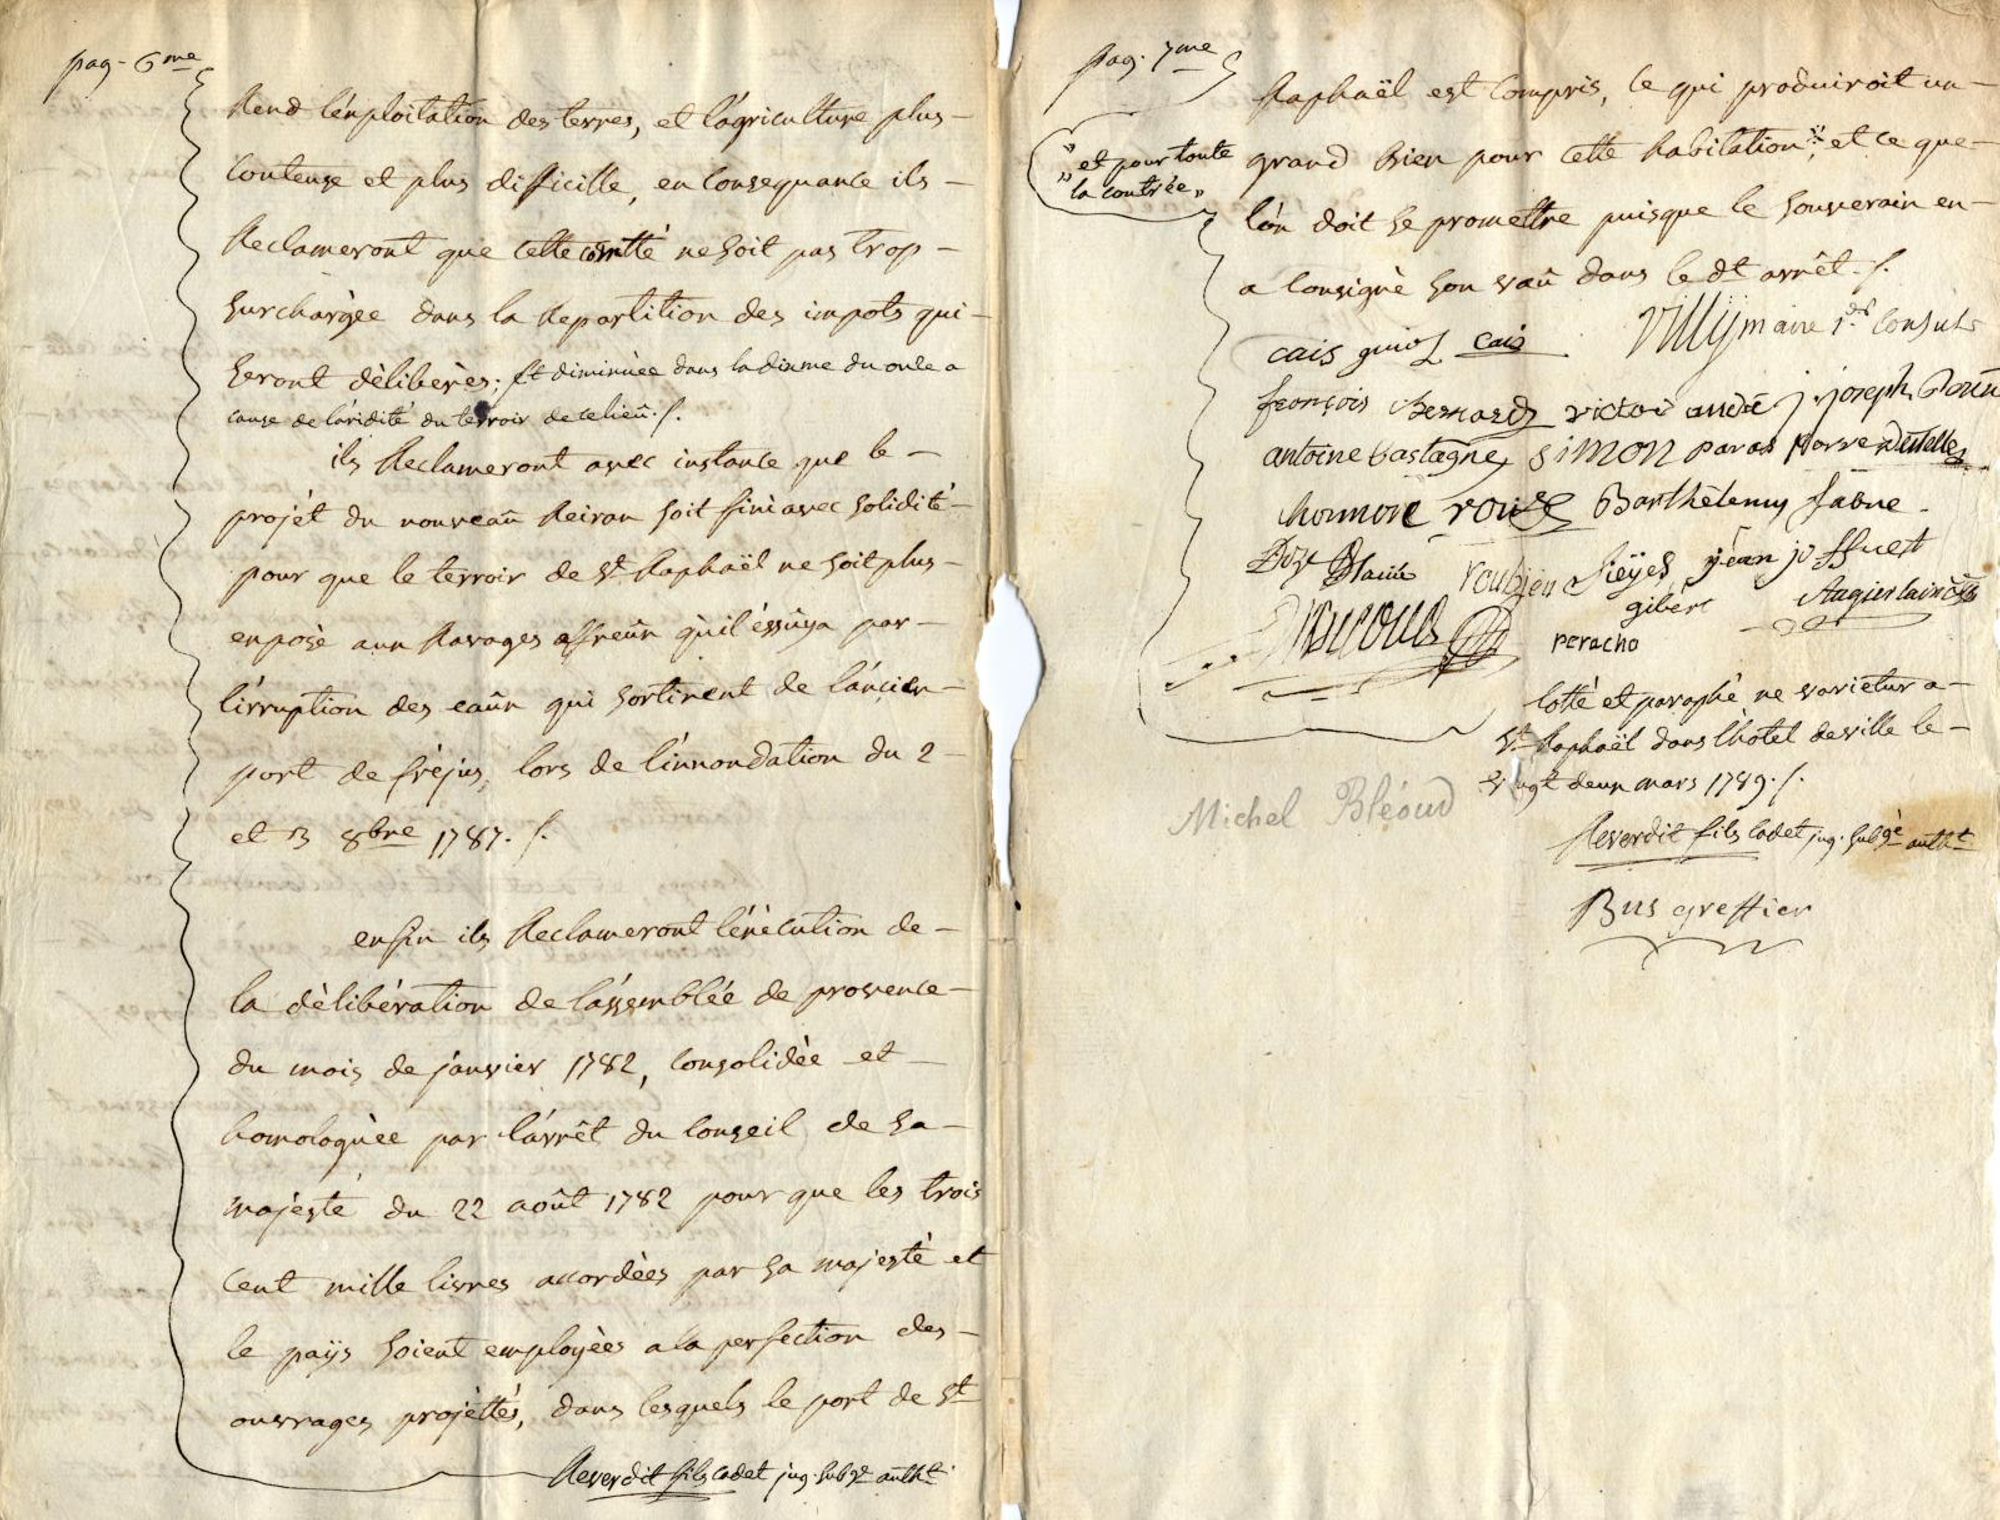 pag. 6me
Rend l'exploitation des terres, et l'agriculture plus
couteuse et plus difficille, en consequance ils
Reclameront que cette comtté ne soit pas trop
surchargèe dans la Repartition des impots qui
seront dèliberès; et diminuèe dans la dixme du onle a
cause de l'aridité du terroir de ce lieu ./.
ils Reclameront avec instance que le
projèt du nouveaû Reiran soit fini avec solidité
pour que le terroir de St Raphaël ne soit plus
exposè aux Ravages affreûx qu'il éssuya par
l'irruption des eaûx qui sortirent de l'ancien
port de frèjus, lors de l'innondation du 2
et 3 8bre 1787 ./.
enfin ils Reclameront l'éxècution de
la dèlibération de l'assemblée de provence
du mois de janvier 1782, consolidèe et
homologuèe par l'arrêt du conseil de sa
majesté du 22 août 1782 pour que les trois
cent mille livres accordèes par sa majestè et
le paÿs soient employèes a la perfection des
ouvrages projèttés, dans lesquels le port de St
Reverdit fils cadet jug. subgé autht
pag. 7me
Raphaël est compris, ce qui produiroit un
grand bien pour cette habitation, et ce que
" et pour toute
" la contrèe "
l'on doit se promettre puisque le souverain en
a consignè son vœû dans le dt arrêt ./.
cais guiol cais Villy maire 1er consul
françois Bernard victor andré j. joseph
antoine Castagne simon paras
honnore roux Barthèlemy fabre
Doze Blaise roubieu Sieÿes jean joffret
gibert Augier
peracho
cotté et paraphè ne varietur a
St Raphaël dans l'hotel de ville le
vingt deux mars 1789 ./.
Michel Bléoud
Reverdit fils cadet jug. subgé autht
Bus greffier